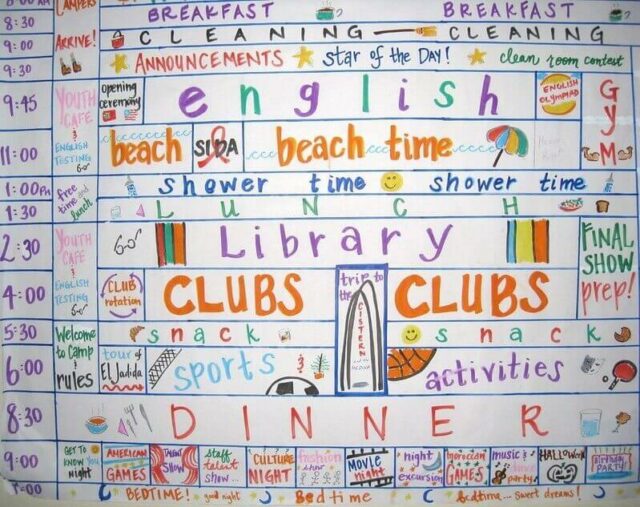 CAMPERS
BREAKFAST BREAKFAST
8:30
ARRIVE!
CLEANING CLEANING
9:00
9:30
ANNOUNCEMENTS star of the DAY! clean room contest
9:45
YOUTH CAFE
&
ENGLISH TESTING
opening ceremony
english
ENGLISH OLYMPIAD
GYM
11:00
beach
SIDA
beach time
1:00PM
free time and lunch
shower time shower time
1:30
LUNCH
2:30
YOUTH CAFE
&
ENGLISH TESTING
Library
FINAL SHOW prep!
4:00
CLUB rotation
CLUBS
trip to the
CISTERN
CLUBS
5:30
Welcome to Camp & rules
snack snack
6:00
tour of El Jadida
sports &
activities
8:30
DINNER
9:00
GET TO KNOW YOU night
AMERICAN GAMES
TALENT SHOW
staff talent show...
CULTURE NIGHT
fashion show
MOVIE night
night excursion
moroccan GAMES
music & dance party
HALLOWEEN
BIRTHDAY PARTY!
BEDTIME! good night Bedtime bedtime... sweet dreams!